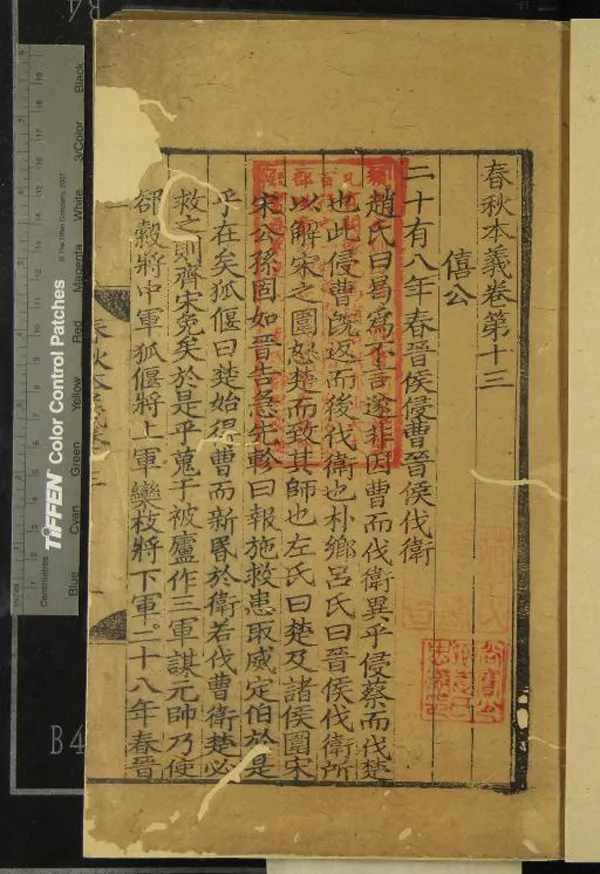 春秋本義卷第十三
僖公
二十有八年春晉侯侵曹晉侯伐衛
趙氏曰曷為不言遂非因曹而伐衛異乎侵蔡而伐楚
也此侵曹既返而後伐衛也朴鄉呂氏曰晉侯伐衛所
以解宋之圍怒楚而致其師也左氏曰楚及諸侯圍宋
宋公孫固如晉告急先軫曰報施救患取威定伯於是
乎在矣狐偃曰楚始得曹而新昏於衛若伐曹衛楚必
救之則齊宋免矣於是乎蒐于被廬作三軍謀元帥乃使
郤縠將中軍狐偃將上軍欒枝將下軍二十八年春晉
TIFFEN Color Control Patches
© The Tiffen Company, 2007
Blue Cyan Green Yellow Red Magenta White 3/Color Black
Centimetres
B4